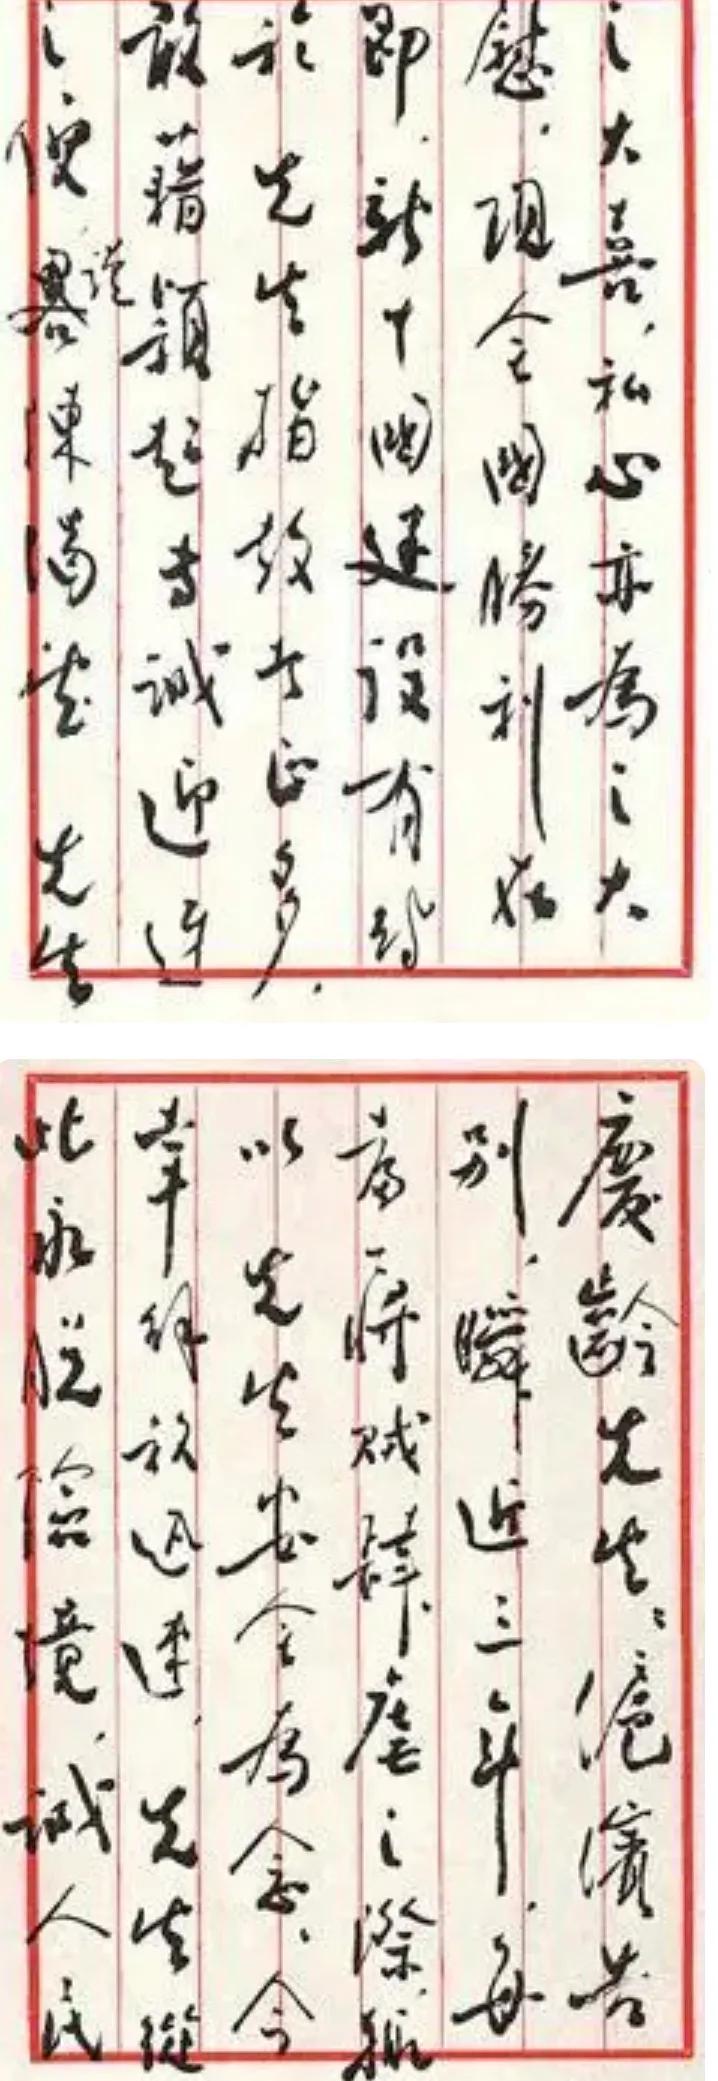 慶齡先生：滬濱告
別，瞬近三年，每
當蔣賊肆虐之際，輒
以先生安全為念。今
幸解放迅速，先生從
此永脫險境，誠人民
之大喜，私心亦為之大
慰。現全國勝利在
即，新中國建設有待
於先生指教者正多，
敢藉穎超專誠迎迓
之便，謹畧陳渴望先生